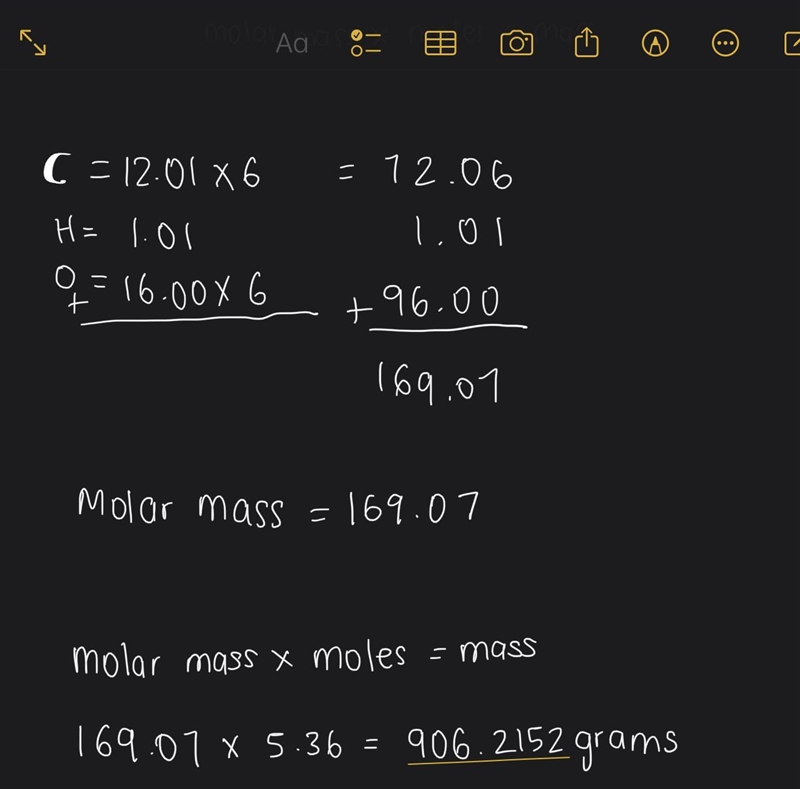 Aa
C = 12.01 x 6 = 72.06
H = 1.01 1.01
O = 16.00 x 6 + 96.00
+
169.07
Molar mass = 169.07
molar mass x moles = mass
169.07 x 5.36 = 906.2152 grams